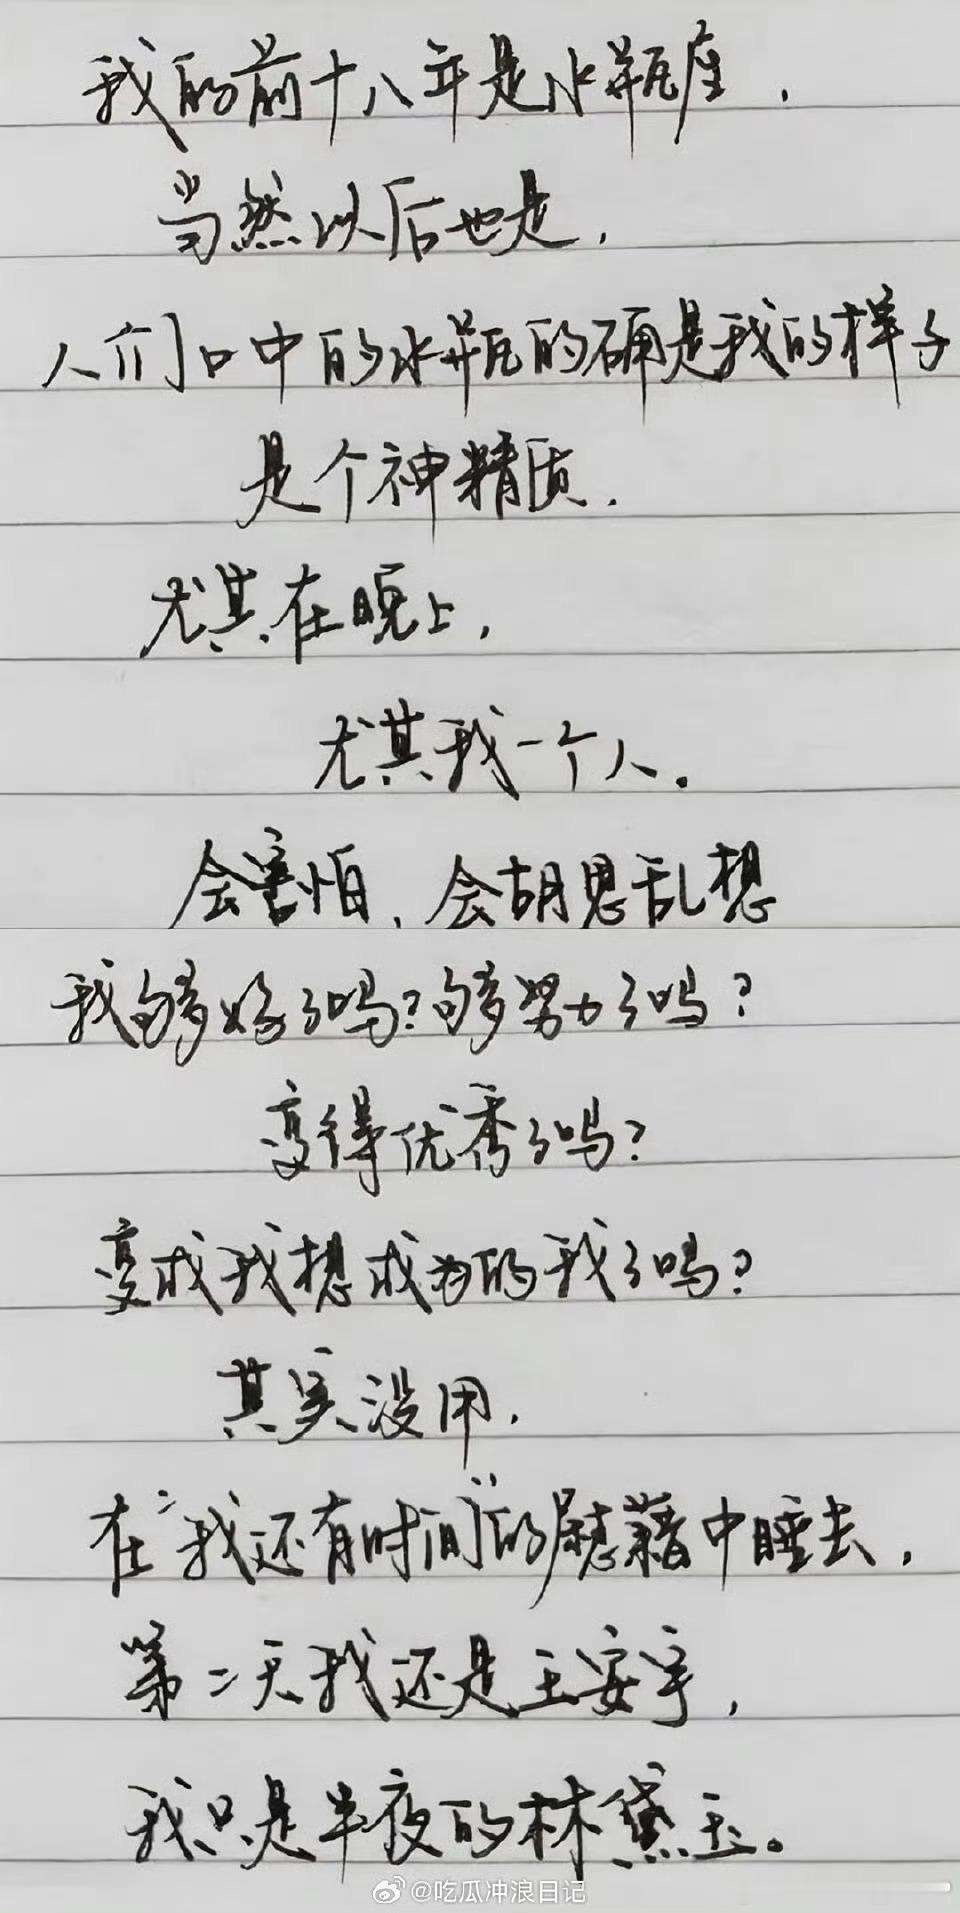 我的前十八年是水瓶座，
当然以后也是，
人们口中的水瓶的确是我的样子
是个神精质，
尤其在晚上，
尤其我一个人。
会害怕，会胡思乱想
我够好了吗？够努力了吗？
变得优秀了吗？
变成我想成为的我了吗？
其实没用，
在“我还有时间”的慰藉中睡去，
第二天我还是王安宇，
我只是半夜的林黛玉。
@吃瓜冲浪日记